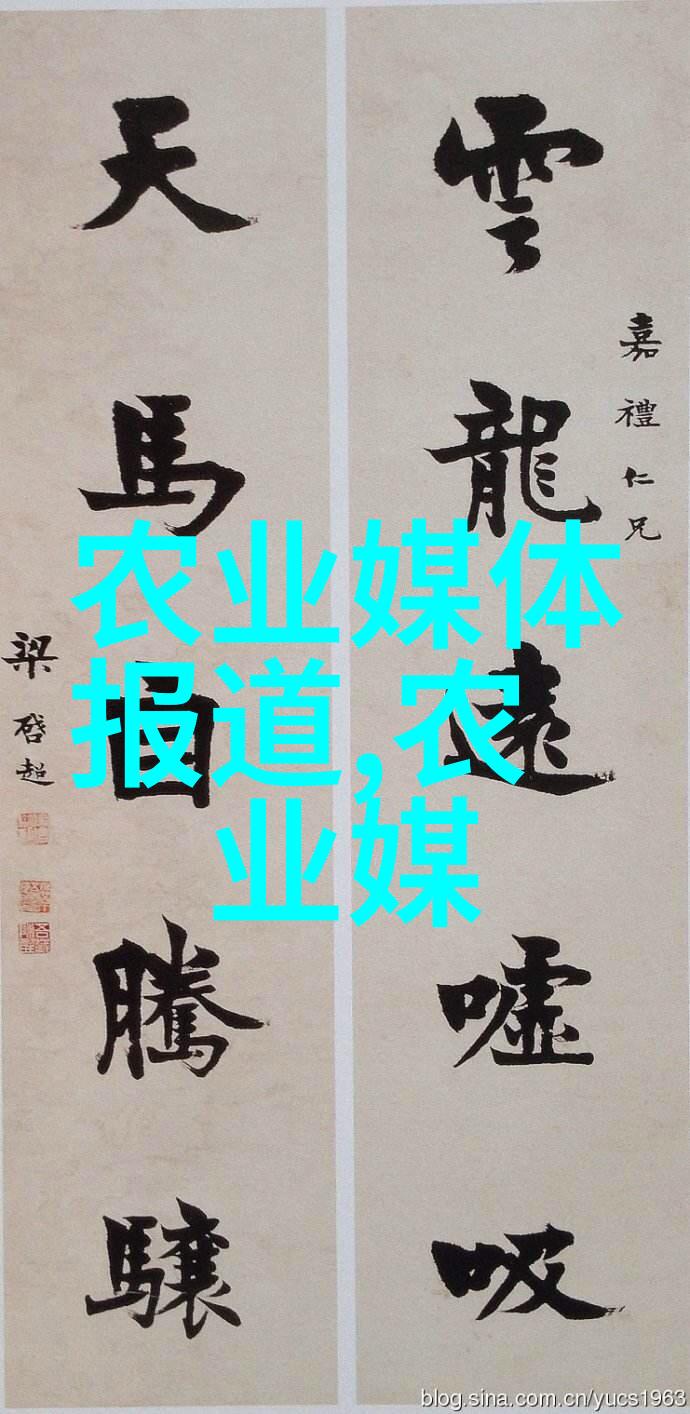 雲龍遠嘘吸
嘉禮仁兄
天馬自騰驤
梁啓超
农业媒体
报道,农
业媒
blog.sina.com.cn/yucs1963